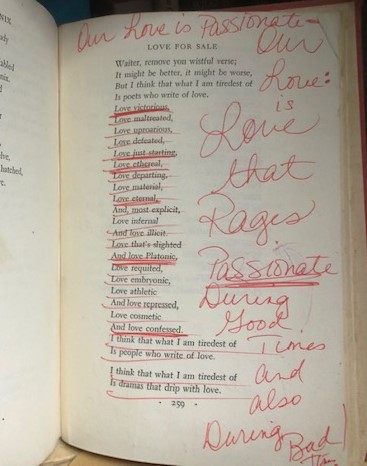 NIX.
Our Love is Passionate
LOVE FOR SALE
Waiter, remove you wistful verse;
It might be better, it might be worse,
But I think that what I am tiredest of
Is poets who write of love.
Love victorious,
Love maltreated,
Love uproarious,
Love defeated,
Love just starting,
Love ethereal,
Love departing,
Love material,
Love eternal,
And, most explicit,
Love infernal
And love illicit.
Love that's slighted
And love Platonic,
Love requited,
Love embryonic,
Love athletic
And love repressed,
Love cosmetic
And love confessed.
I think that what I am tiredest of
Is people who write of love.
I think that what I am tiredest of
Is dramas that drip with love.
· 259 ·
Our
Love:
is
Love
that
Rages
Passionate
During
Good
Times
and
also
During Bad
hatched,